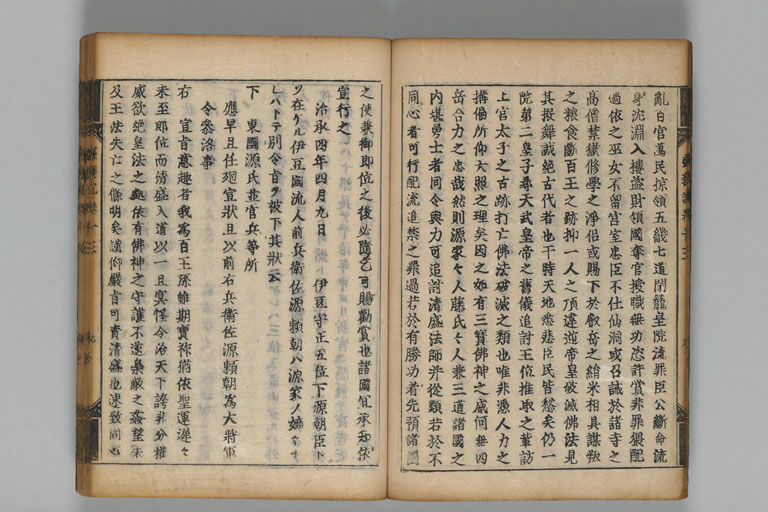 乱百官萬民掠領五畿七道閉籠皇院流罪臣公断命流
身沈淵入樓盗財領國奪官授職無功恣許賞非罪猥配
過依之巫女不留宮室忠臣不仕仙洞或召誡於諸寺之
高僧禁獄修學之浄侶或賜下於叡岳之絹米相具謀叛
之粮食断百王之跡抑一人之頂違逆帝皇破滅佛法見
其振舞誠絶古代者也于時天地悉悲臣民皆愁矣仍一
院第二皇子尋天武皇帝之舊儀追討王位推取之輩訪
上宮太子之古跡打亡佛法破滅之類也唯非憑人力之
搆偏所仰天照之理矣因之如有三寳佛神之威何無四
岳合力之忠哉然則源家之人藤氏之人兼三道諸國之
内堪勇士者同令與力可追討清盛法師并從類若於不
同心者可行配流追禁之罪過若於有勝功者先預諸國
之使兼御即位之後必隨乞可賜勸賞也諸國宜承知依
宣行之
治承四年四月九日 伊豆守正五位下源朝臣ト
ソ在リル伊豆國流人前兵衛佐源頼朝ハ源家ノ嫡々ナ
レハトテ別令旨ヲ被下其狀云
下 東國源氏並官兵等所
應早且任廻宣狀且以前右兵衛佐源頼朝為大將軍
令参洛事
右 宣旨意趣者我為百王孫雖期寳祚猶依聖運遅々
未至即位而清盛入道以一旦冥怪令治天下誇非分權
威欲絶皇法之處依有佛神之守護不遂梟敵之姦望未
及王法失亡之條明矣議仰嚴旨可責清盛也速致同心